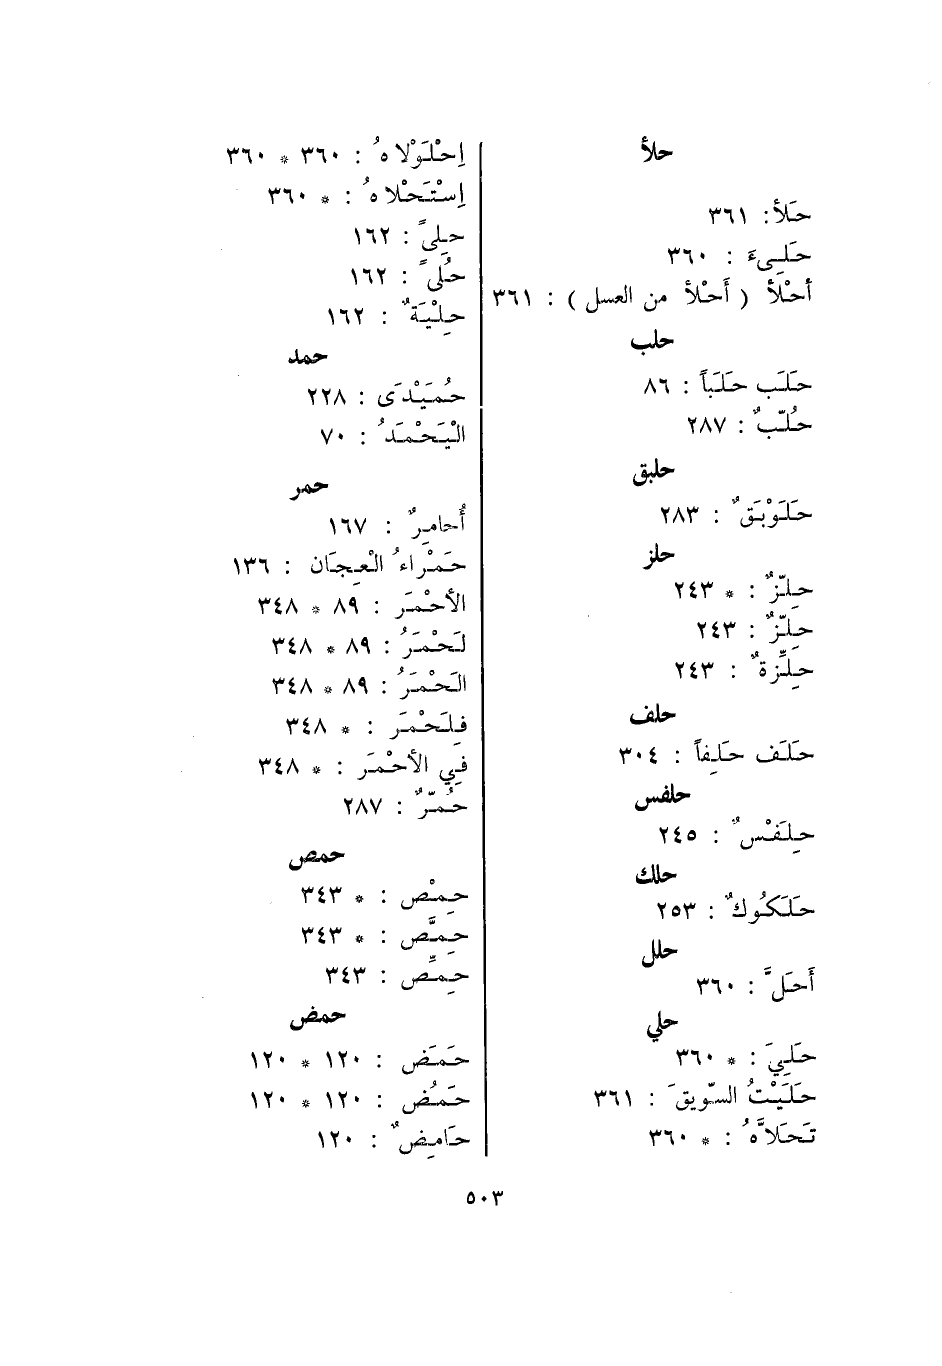 حلأ
حَلأ: ٣٦١
حَلِىءَ : ٣٦٠
أحْلأ ( أَحْلأ من العسل ) : ٣٦١
حلب
حَلَب حَلَباً : ٨٦
حُلّبٌ : ٢٨٧
حلبق
حَلَوْبَقٌ : ٢٨٣
حلز
حِلّزٌ : * ٢٤٣
حِلِّزٌ : ٢٤٣
حِلِّزةٌ : ٢٤٣
حلف
حَلَف حَلِفاً : ٣٠٤
حلفس
حِلَفْسٌ : ٢٤٥
حلك
حَلَكُوكٌ : ٢٥٣
حلل
أَحَلَّ : ٣٦٠
حلي
حَلِيَ : * ٣٦٠
حَلَيْتُ السّويقَ : ٣٦١
تَحَلاَّهُ : * ٣٦٠
اِحْلَوْلاهُ : ٣٦٠ * ٣٦٠
اِسْتَحْلاهُ : * ٣٦٠
حِلِىً : ١٦٢
حُلىً : ١٦٢
حِلْيَةٌ : ١٦٢
حمد
حُمَيْدَى : ٢٢٨
الْيَحْمَدُ : ٧٠
حمر
أُحامِرٌ : ١٦٧
حَمْراءُ الْعِجَان : ١٣٦
الأحْمَر : ٨٩ * ٣٤٨
لَحْمَرُ : ٨٩ * ٣٤٨
الَحْمَرُ : ٨٩ * ٣٤٨
فِلَحْمَر : * ٣٤٨
فِي الأحْمَر : * ٣٤٨
حُمّرٌ : ٢٨٧
حمص
حِمْص : * ٣٤٣
حِمَّص : * ٣٤٣
حِمِّص : ٣٤٣
حمض
حَمَض : ١٢٠ * ١٢٠
حَمُض : ١٢٠ * ١٢٠
حَامِضٌ : ١٢٠
٥٠٣